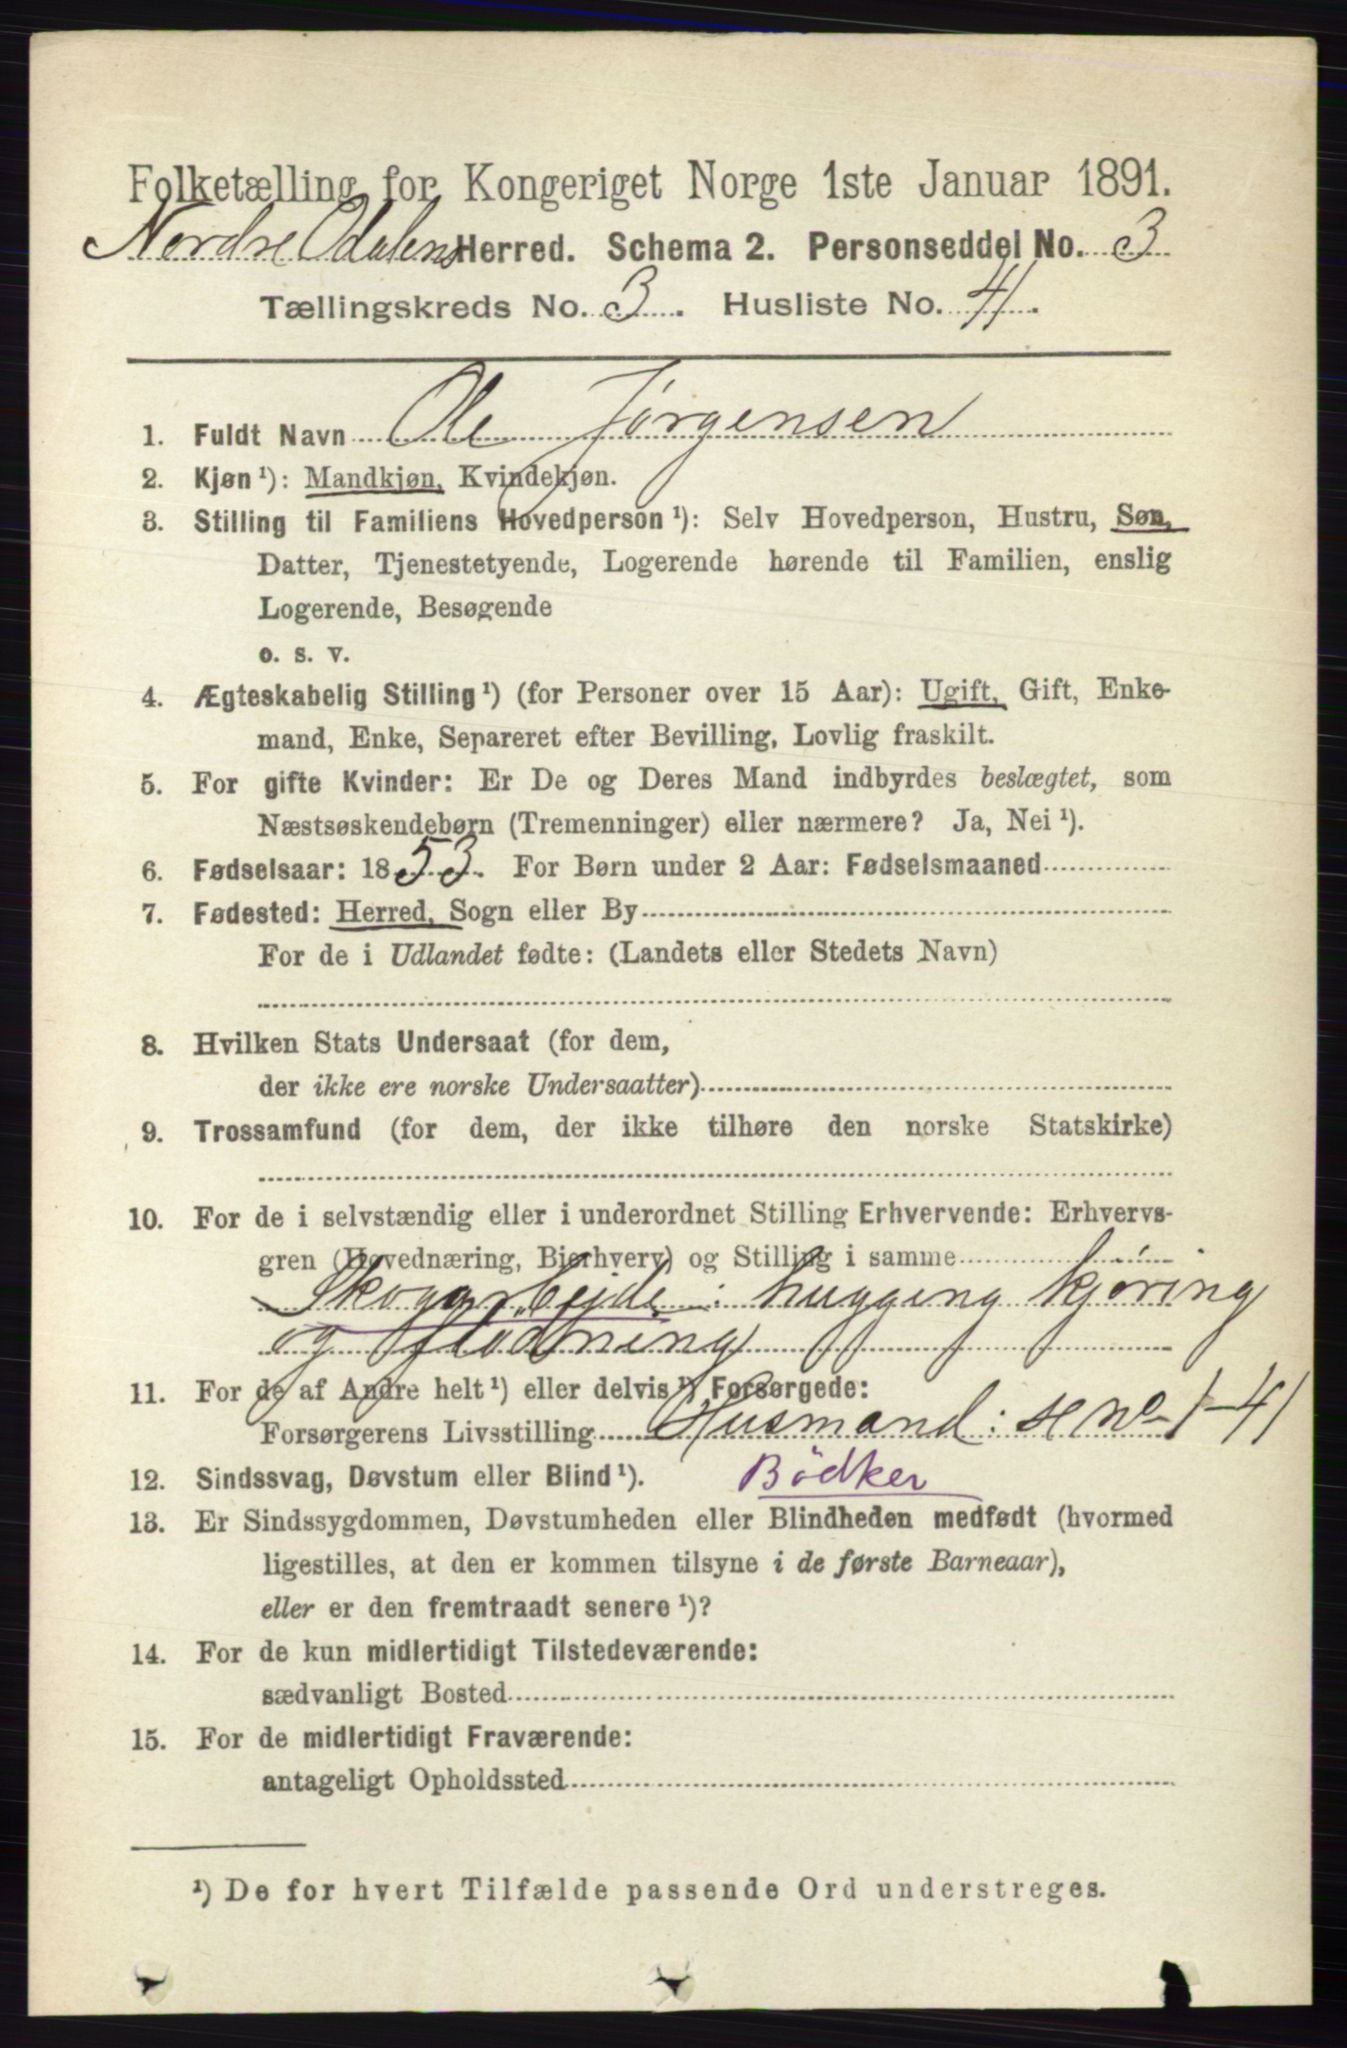 Folketælling for Kongeriget Norge 1ste Januar 1891.
Nordre Odalens Herred. Schema 2. Personseddel No. 3
Tællingskreds No. 3. Husliste No. 41.
1. Fuldt Navn Ole Jörgensen
2. Kjøn ¹): Mandkjøn, Kvindekjøn.
3. Stilling til Familiens Hovedperson ¹): Selv Hovedperson, Hustru, Søn,
Datter, Tjenestetyende, Logerende hørende til Familien, enslig
Logerende, Besøgende
o. s. v.
4. Ægteskabelig Stilling ¹) (for Personer over 15 Aar): Ugift, Gift, Enke-
mand, Enke, Separeret efter Bevilling, Lovlig fraskilt.
5. For gifte Kvinder: Er De og Deres Mand indbyrdes beslægtet, som
Næstsøskendebørn (Tremenninger) eller nærmere? Ja, Nei ¹).
6. Fødselsaar: 1853. For Børn under 2 Aar: Fødselsmaaned
7. Fødested: Herred, Sogn eller By
For de i Udlandet fødte: (Landets eller Stedets Navn)
8. Hvilken Stats Undersaat (for dem,
der ikke ere norske Undersaatter)
9. Trossamfund (for dem, der ikke tilhøre den norske Statskirke)
10. For de i selvstændig eller i underordnet Stilling Erhvervende: Erhvervs-
gren (Hovednæring, Bierhverv) og Stilling i samme
Skogarbejde: hugging kjöring
og flödning
11. For de af Andre helt ¹) eller delvis ¹) Forsørgede:
Forsørgerens Livsstilling Husmand: se no 1-41
12. Sindssvag, Døvstum eller Blind ¹). Bödker
13. Er Sindssygdommen, Døvstumheden eller Blindheden medfødt (hvormed
ligestilles, at den er kommen tilsyne i de første Barneaar),
eller er den fremtraadt senere ¹)?
14. For de kun midlertidigt Tilstedeværende:
sædvanligt Bosted
15. For de midlertidigt Fraværende:
antageligt Opholdssted
¹) De for hvert Tilfælde passende Ord understreges.